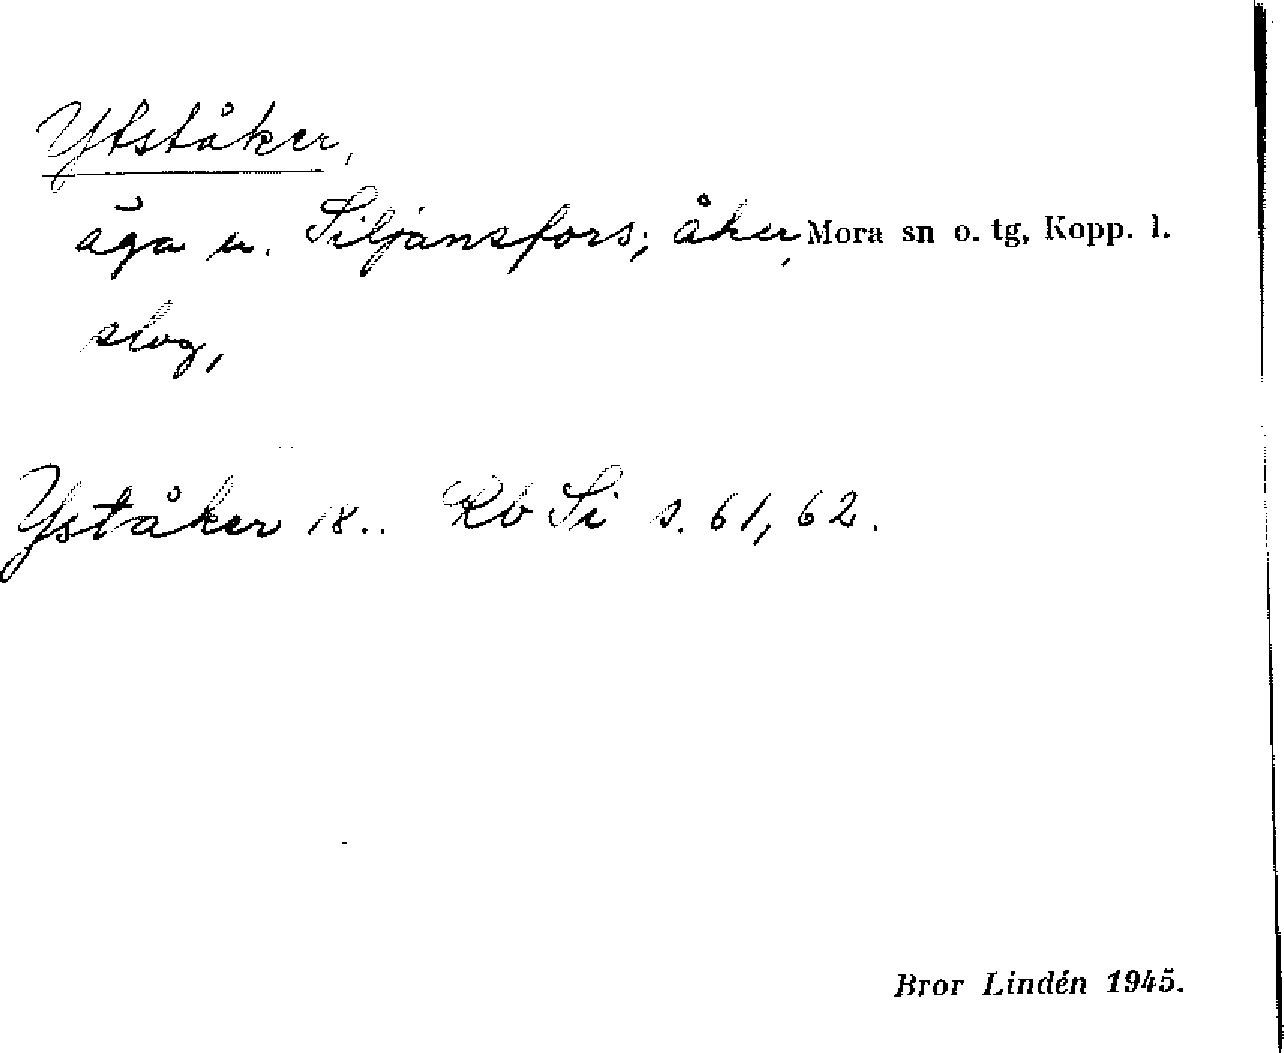 Ytståker,
äga u. Siljansfors; åker, Mora sn o. tg, Kopp. l.
slog,
Yståker 18.. Rb Si s. 61, 62.
Bror Lindén 1945.